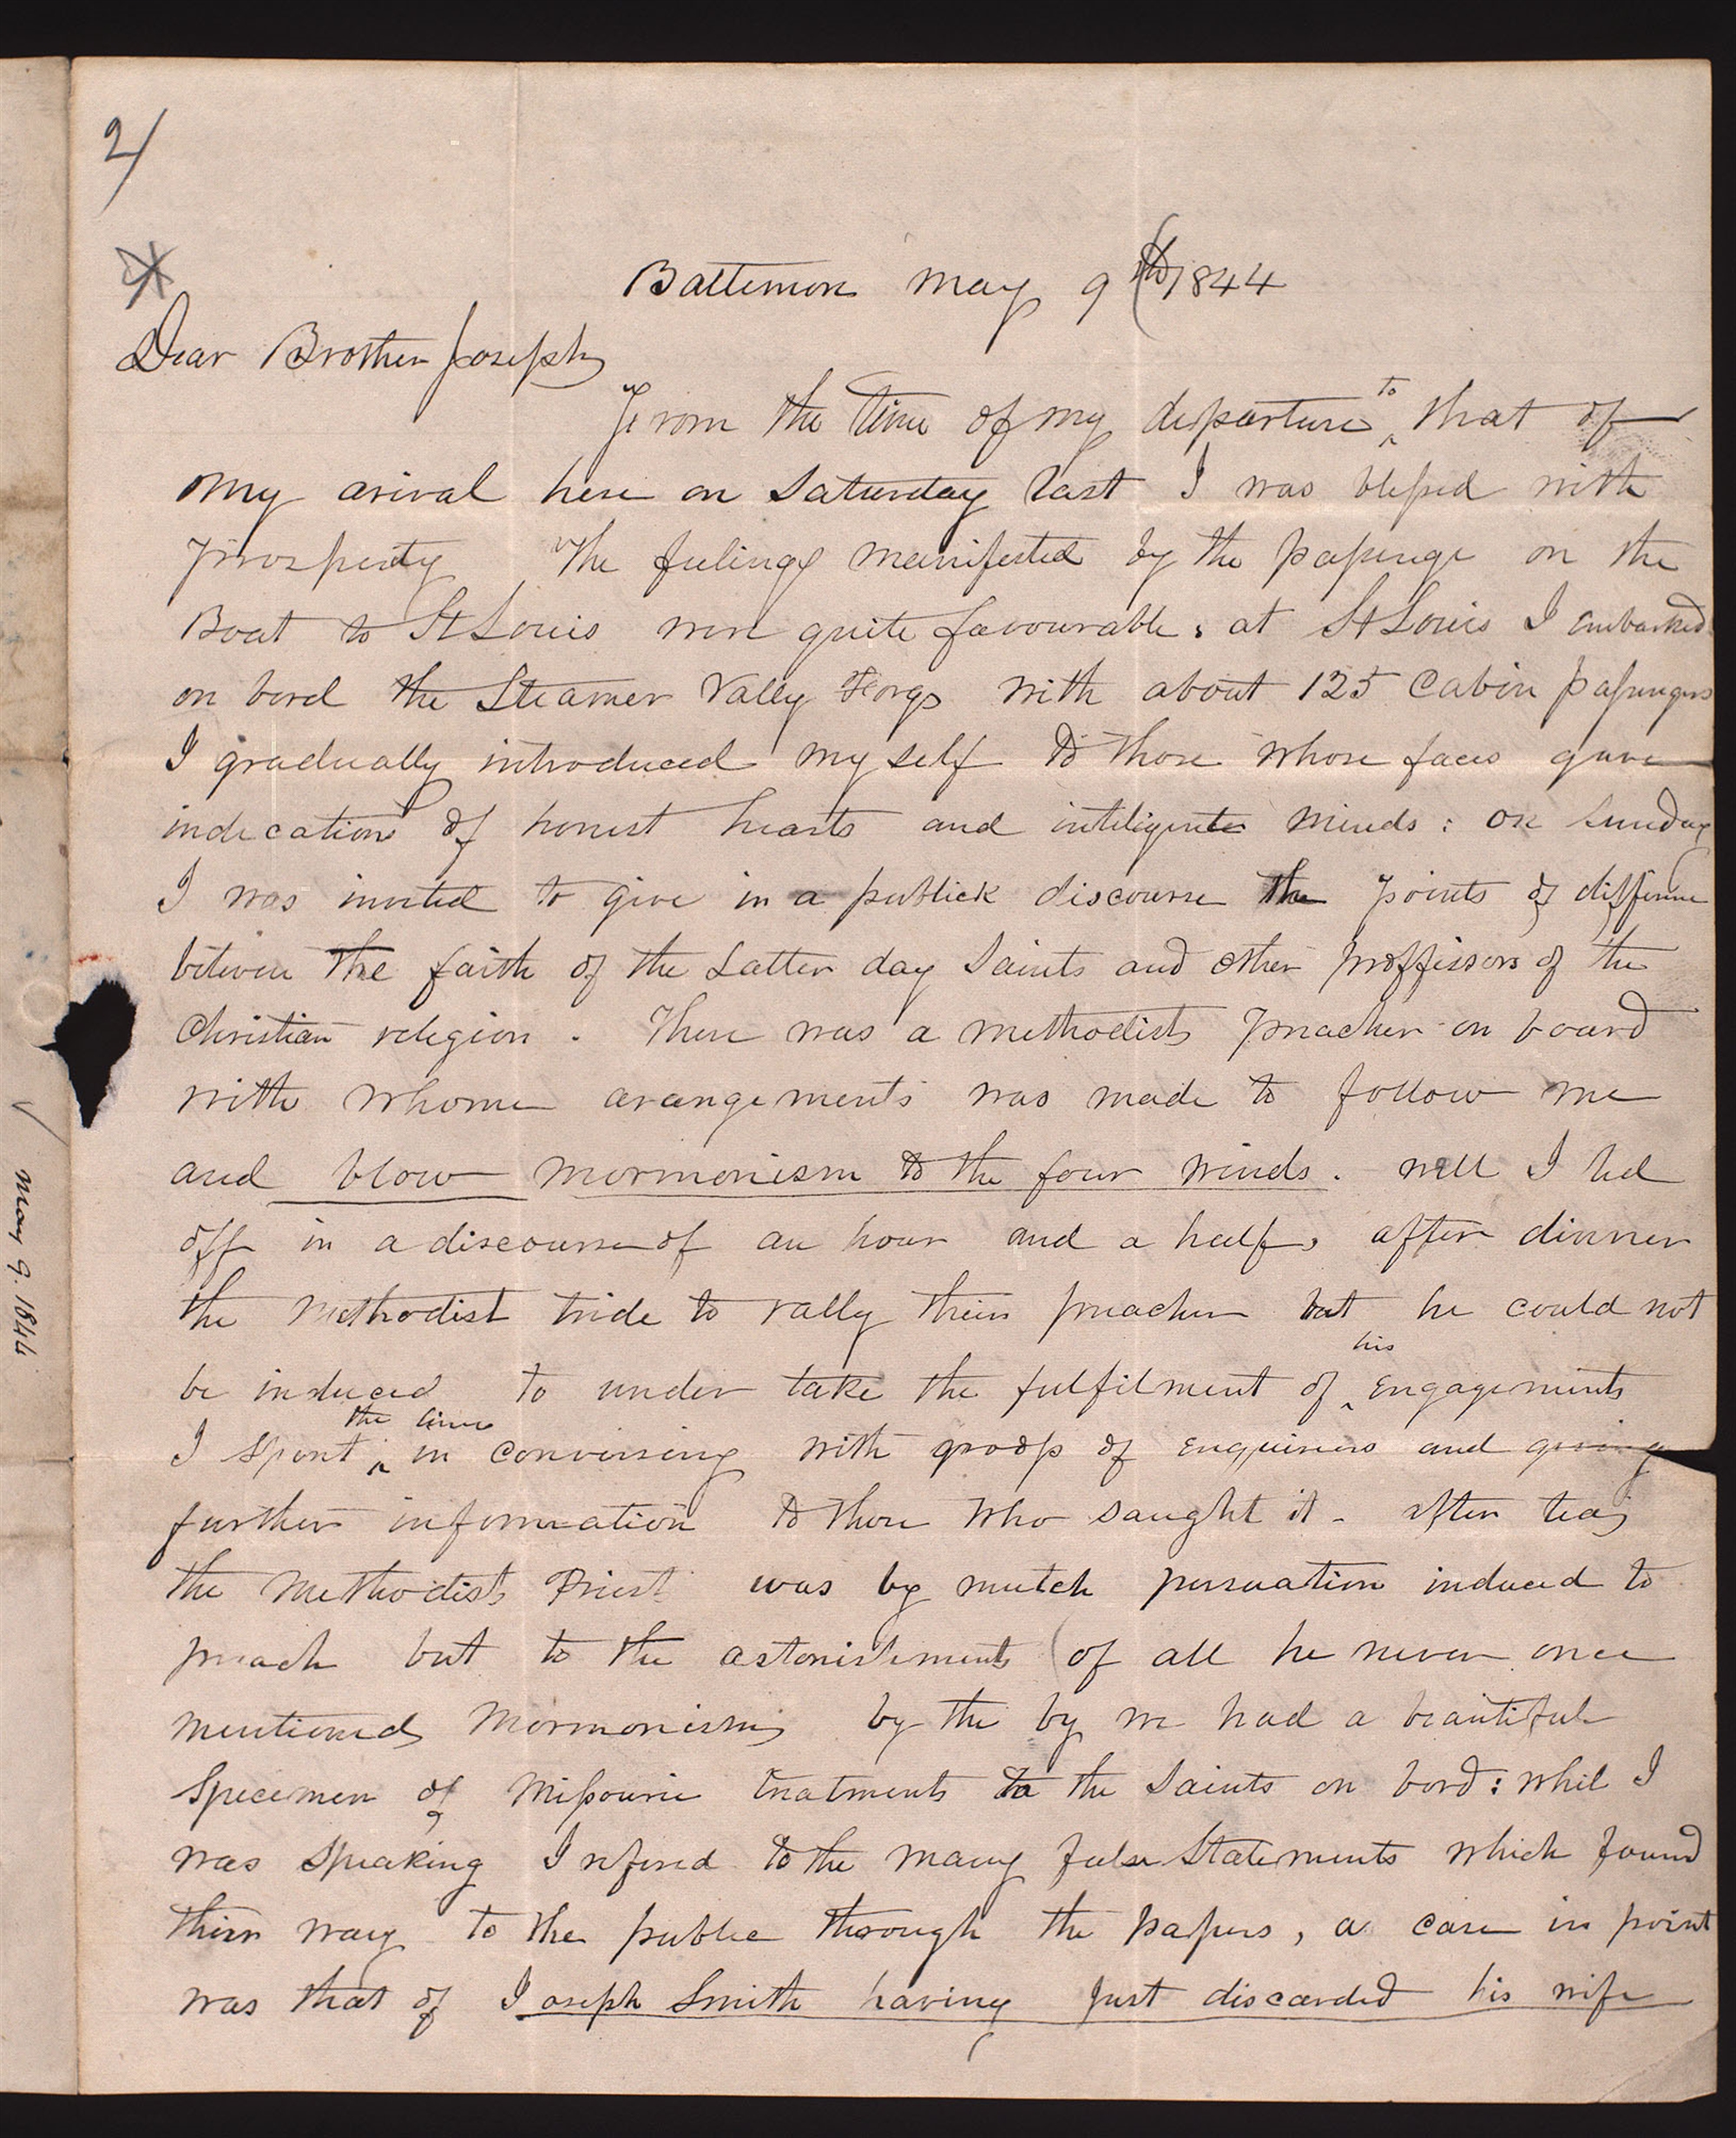 2/
Baltimore May 9th 1844
Dear Brother Joseph
From the time of my departure to that of
my arival here on Saturday last I was blessed with
prosperity The feelings manifested by the passenge on the
Boat to St Louis were quite favourable, at St Louis I embarked
on bord the Steamer Vally Forge with about 125 Cabin passengers
I gradually introduced my self to those whose faces gave
indications of honest hearts and inteligente minds: on Sunday
I was invited to give in a publick discourse the points of differene
between the faith of the Latter day Saints and other proffissors of the
Christian religion. There was a methodist preacher on board
with whome arangements was made to follow me
and blow mormonism to the four winds. well I led
off in a discourse of an hour and a half, after dinner
the Methodist tride to rally their preacher but he could not
be induced to under take the fulfilment of his engagements
I spent the time in conversing with groops of enquirers and giving
further information to those who saught it - after tea
the Methodist Priest was by mutch persuation induced to
preach but to the astonishment of all he never once
mentioned Mormonism by the by we had a beautiful
Specimen of Missourie treatment to the Saints on bord: whil I
was speaking I refered to the many false Statements which found
their way to the public through the papers, a case in point
was that of Joseph Smith having just discarded his wife
May 9. 1844